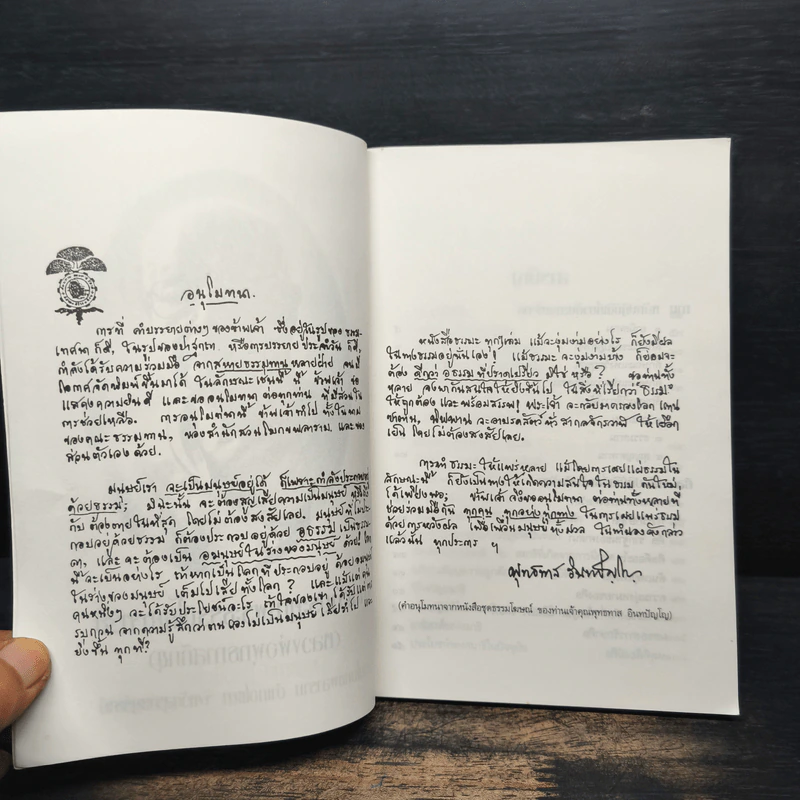 อนุโมทนา.
การที่ คำบรรยายต่างๆ ของข้าพเจ้า ซึ่งอยู่ในรูปของ ธรรม-
เทศนา ก็ดี, ในรูปของปาฐกถา หรือการบรรยาย ประจำวัน ก็ดี,
กำลังได้รับความร่วมมือ จากสหายธรรมทาน หลายฝ่าย จนมี
โอกาสจัดพิมพ์ขึ้นมาได้ ในลักษณะเช่นนี้ นี้ ข้าพเจ้า ขอ
แสดงความยินดี และขออนุโมทนา ต่อทุกท่าน ที่มีส่วนใน
การช่วยเหลือ. การอนุโมทนานี้ ข้าพเจ้าทำไป ทั้งในนาม
ของคณะธรรมทาน, ของสำนักสวนโมกขพลาราม, และของ
ส่วนตัวเอง ด้วย.
มนุษย์เรา จะเป็นมนุษย์อยู่ได้ ก็เพราะกำลังประกอบอยู่
ด้วยธรรม; มิฉะนั้น จะต้องสูญเสียความเป็นมนุษย์ หรือถึง
กับ ต้องตายในที่สุด โดยไม่ต้องสงสัยเลย. มนุษย์ที่ไม่ประ-
กอบอยู่ด้วยธรรม ก็ต้องประกอบอยู่ด้วย อธรรม เป็นธรรม-
ดา, และ จะต้องเป็น อมนุษย์ในร่างของมนุษย์ ด้วย! โลก
นี้จะเป็นอย่างไร ถ้าหากเป็นโลกที่ประกอบอยู่ ด้วยอมนุษย์
ในร่างของมนุษย์ เต็มไปเสียทั้งโลก? และแม้แต่ คน
คนหนึ่งๆ จะได้รับประโยชน์อะไร ถ้าใจของเขา ได้รับแต่การ
รบกวน จากความรู้สึกว่าตนเองไม่เป็นมนุษย์ เสียทำไป และ
ยิ่งขึ้น ทุกที?
หนังสือธรรมะ ทุกๆเล่ม แม้จะงุ่มง่ามอย่างไร ก็ยังมีผล
ในทางธรรมอยู่นั่นเอง! แม้ธรรมะ จะงุ่มง่ามบ้าง ก็ย่อมจะ
ต้อง ดีกว่า อธรรม ที่ปราดเปรียว มิใช่ หรือ? ขอท่านทั้ง
หลาย จงพากันสนใจให้ยิ่งขึ้นไป ในสิ่งที่เรียกว่า "ธรรม"
ให้ถูกต้อง และ พร้อมสรรพ! พระเจ้า จะกลับมาครองโลก แทน
ซาตาน, นิพพาน จะอาบรดสัตว์ทั่วสากลจักรวาฬ ให้เยือก
เย็น โดยไม่ต้องสงสัยเลย.
การทำ ธรรมะ ให้แพร่หลาย แม้โดยการเผยแผ่ธรรมใน
ลักษณะนี้ ก็ยังเป็นทางให้เกิดความสนใจในธรรม กันขึ้นมา,
ได้เพียงพอ; ข้าพเจ้า จึงขออนุโมทนา ต่อท่านทั้งหลายที่
ช่วยร่วมมือกัน ทุกคน ทุกอย่างทุกทาง ในการเผยแผ่ธรรม
ด้วยการหวังผล เพื่อเพื่อนมนุษย์ทั้งมวล ในทำนองดังกล่าว
แล้วนั้น ทุกประการ ฯ
พุทธทาส อินทปัญโญ
(คำอนุโมทนาจากหนังสือชุดธรรมโฆษณ์ ของท่านเจ้าคุณพุทธทาส อินทปัญโญ)